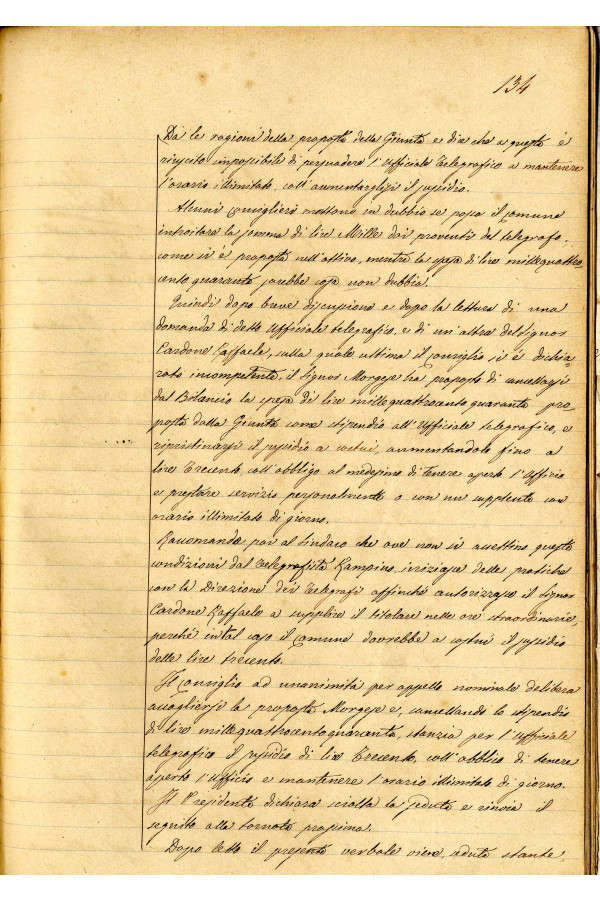 134
Dà le ragioni della proposta della Giunta e dice che a questa è
riuscito impossibile di persuadere l'Ufficiale telegrafico a mantenere
l'orario illimitato, coll'aumentarglisi il sussidio.
Alcuni consiglieri mettono in dubbio se possa il Comune
introitare la somma di lire Mille dai proventi del telegrafo,
come si è proposto nell'attivo, mentre la spesa di lire millequattro-
cento quaranta sarebbe cosa non dubbia.
Quindi dopo breve discussione e dopo la lettura di una
domanda di detto Ufficiale telegrafico, e di un'altra del Signor
Cardone Raffaele, sulla quale ultima il Consiglio si è dichia-
rato incompetente, il Signor Morgese ha proposto di cancellarsi
dal Bilancio la spesa di lire millequattrocento quaranta pro-
posta dalla Giunta come stipendio all'Ufficiale telegrafico, e
ripristinarsi il sussidio a costui, aumentandolo fino a
lire trecento coll'obbligo al medesimo di tenere aperto l'Ufficio
e prestare servizio personalmente o con un supplente con
orario illimitato di giorno.
Raccomanda poi al Sindaco che ove non si accettino queste
condizioni dal telegrafista Rampino, iniziasse delle pratiche
con la Direzione dei telegrafi affinché autorizzasse il Signor
Cardone Raffaele a supplire il titolare nelle ore straordinarie,
perché in tal caso il Comune dovrebbe a costui il sussidio
delle lire trecento.
Il Consiglio ad unanimità per appello nominale delibera
accogliersi la proposta Morgese e, cancellando lo stipendio
di lire millequattrocento quaranta, stanzia per l'Ufficiale
telegrafico il sussidio di lire trecento, coll'obbligo di tenere
aperto l'Ufficio e mantenere l'orario illimitato di giorno.
Il Presidente dichiara sciolta la seduta e rinvia il
seguito alla tornata prossima.
Dopo letto il presente verbale viene, seduta stante,